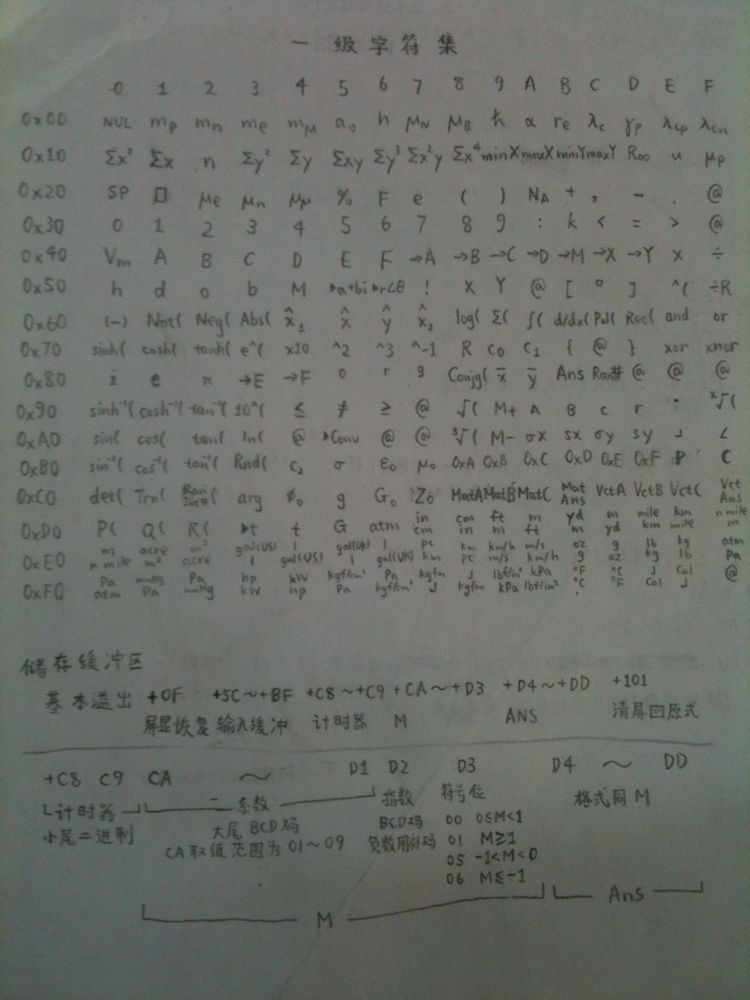 一级字符集
0 1 2 3 4 5 6 7 8 9 A B C D E F
0x00 NUL mp mn me mμ a₀ h μN μB ħ α re λc γp λcp λcn
0x10 Σx² Σx n Σy² Σy Σxy Σy³ Σx²y Σx⁴ minX maxX minY maxY R∞ u μp
0x20 SP μe μn μμ % F e ( ) NA + , - . @
0x30 0 1 2 3 4 5 6 7 8 9 : k < = > @
0x40 Vm A B C D E F →A →B →C →D →M →X →Y × ÷
0x50 h d o b M ▸a+bi ▸r∠θ ! X Y @ [ ° ] ^( ÷R
0x60 (-) Not( Neg( Abs( x̂₁ x̂ ŷ x̂₂ log( Σ( ∫( d/dx( Pol( Rec( and or
0x70 sinh( cosh( tanh( e^( x10 ^2 ^3 ^-1 R c₀ c₁ { @ } xor xnor
0x80 i e π →E →F o r g Conjg( x̄ ȳ Ans Ran# @ @ @
0x90 sinh⁻¹( cosh⁻¹( tan⁻¹( 10^( ≤ ≠ ≥ @ √( M+ A B C r · ˣ√(
0xA0 sin( cos( tan( ln( @ ▸Conv @ @ ³√( M- σx sx σy sy ┘ ∠
0xB0 sin⁻¹( cos⁻¹( tan⁻¹( Rnd( c₂ σ ε₀ μ₀ 0xA 0xB 0xC 0xD 0xE 0xF P C
0xC0 det( Trn( RanInt#( arg ϕ₀ g G₀ Z₀ MatA MatB MatC MatAns VctA VctB Vct( VctAns
0xD0 P( Q( R( ▸t t G atm in/cm cm/in ft/m m/ft yd/m m/yd mile/km km/mile n mile/m
0xE0 m/n mile acre/m² m²/acre gal(US)/l l/gal(US) gal(UK)/l l/gal(UK) pc/km km/pc km/h/m/s m/s/km/h oz/g g/oz lb/kg kg/lb atm/Pa
0xF0 Pa/atm mmHg/Pa Pa/mmHg hp/kW kW/hp kgf/cm²/Pa Pa/kgf/cm² kgfm/J J/kgfm lbf/in²/kPa kPa/lbf/in² °F/°C °C/°F J/Cal Cal/J @
储存缓冲区
基本溢出 +0F +5C～+BF +C8～+C9 +CA～+D3 +D4～+DD +101
屏显恢复 输入缓冲 计时器 M ANS 清屏回原式
+C8 C9 CA ～ D1 D2 D3 D4 ～ DD
计时器 二系数 指数 符号位 格式同M
小尾二进制 大尾BCD码 BCD码 00 0≤M<1
CA取值范围为01～09 负数用补码 01 M≥1
05 -1<M<0
06 M≤-1
M Ans